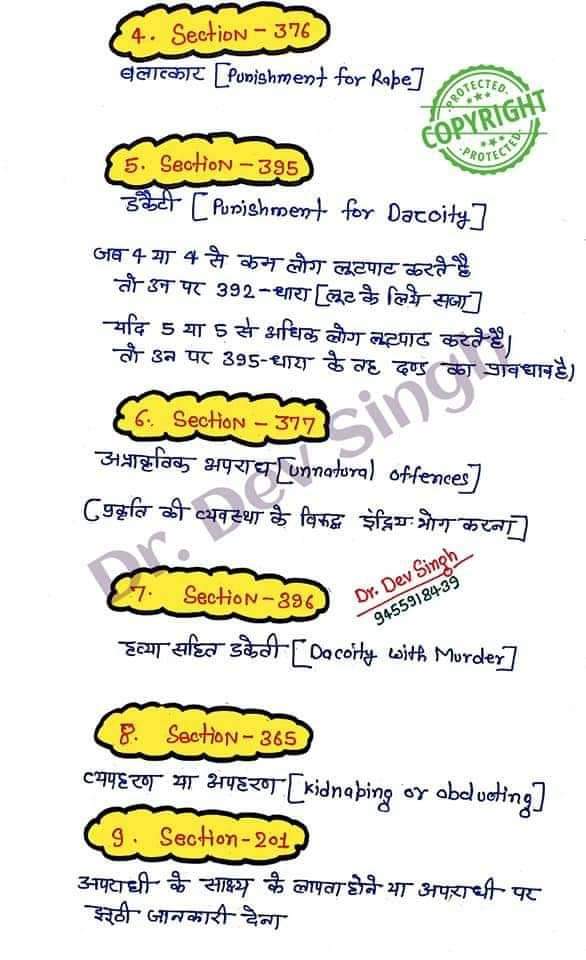 4. Section - 376
बलात्कार [Punishment for Rape]
PROTECTED
COPYRIGHT
PROTECTED
5. Section - 395
डकैटी [Punishment for Dacoity]
जब 4 या 4 से कम लोग लूटपाट करते है
तो उन पर 392-धारा [लूट के लिये सजा]
यदि 5 या 5 से अधिक लोग लूटपाट करते है|
तो उन पर 395-धारा के तह दण्ड का प्रावधाव है)
6. Section - 377
अप्राकृतिक अपराध [unnatural offences]
[प्रकृति की व्यवस्था के विरुद्ध इंद्रिय भोग करना]
Dr. Dev Singh
7. Section - 396
Dr. Dev Singh
9455918439
हत्या सहित डकैती [Dacoity with Murder]
8. Section - 365
व्यपहरण या अपहरण [kidnabing or abducting]
9. Section - 201
अपराधी के साक्ष्य के लापता होने या अपराधी पर
झूठी जानकारी देना